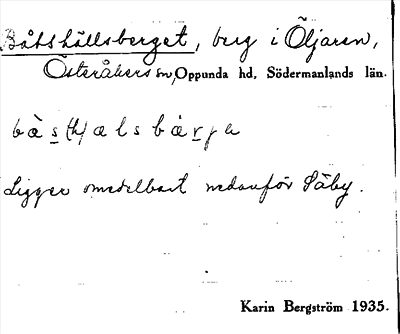 Båtshällsberget, berg i Öljaren,
Österåkers sn, Oppunda hd, Södermanlands län.
bȧ̀s(h)ælsbærja
Ligger omedelbart nedanför Säby.
Karin Bergström 1935.